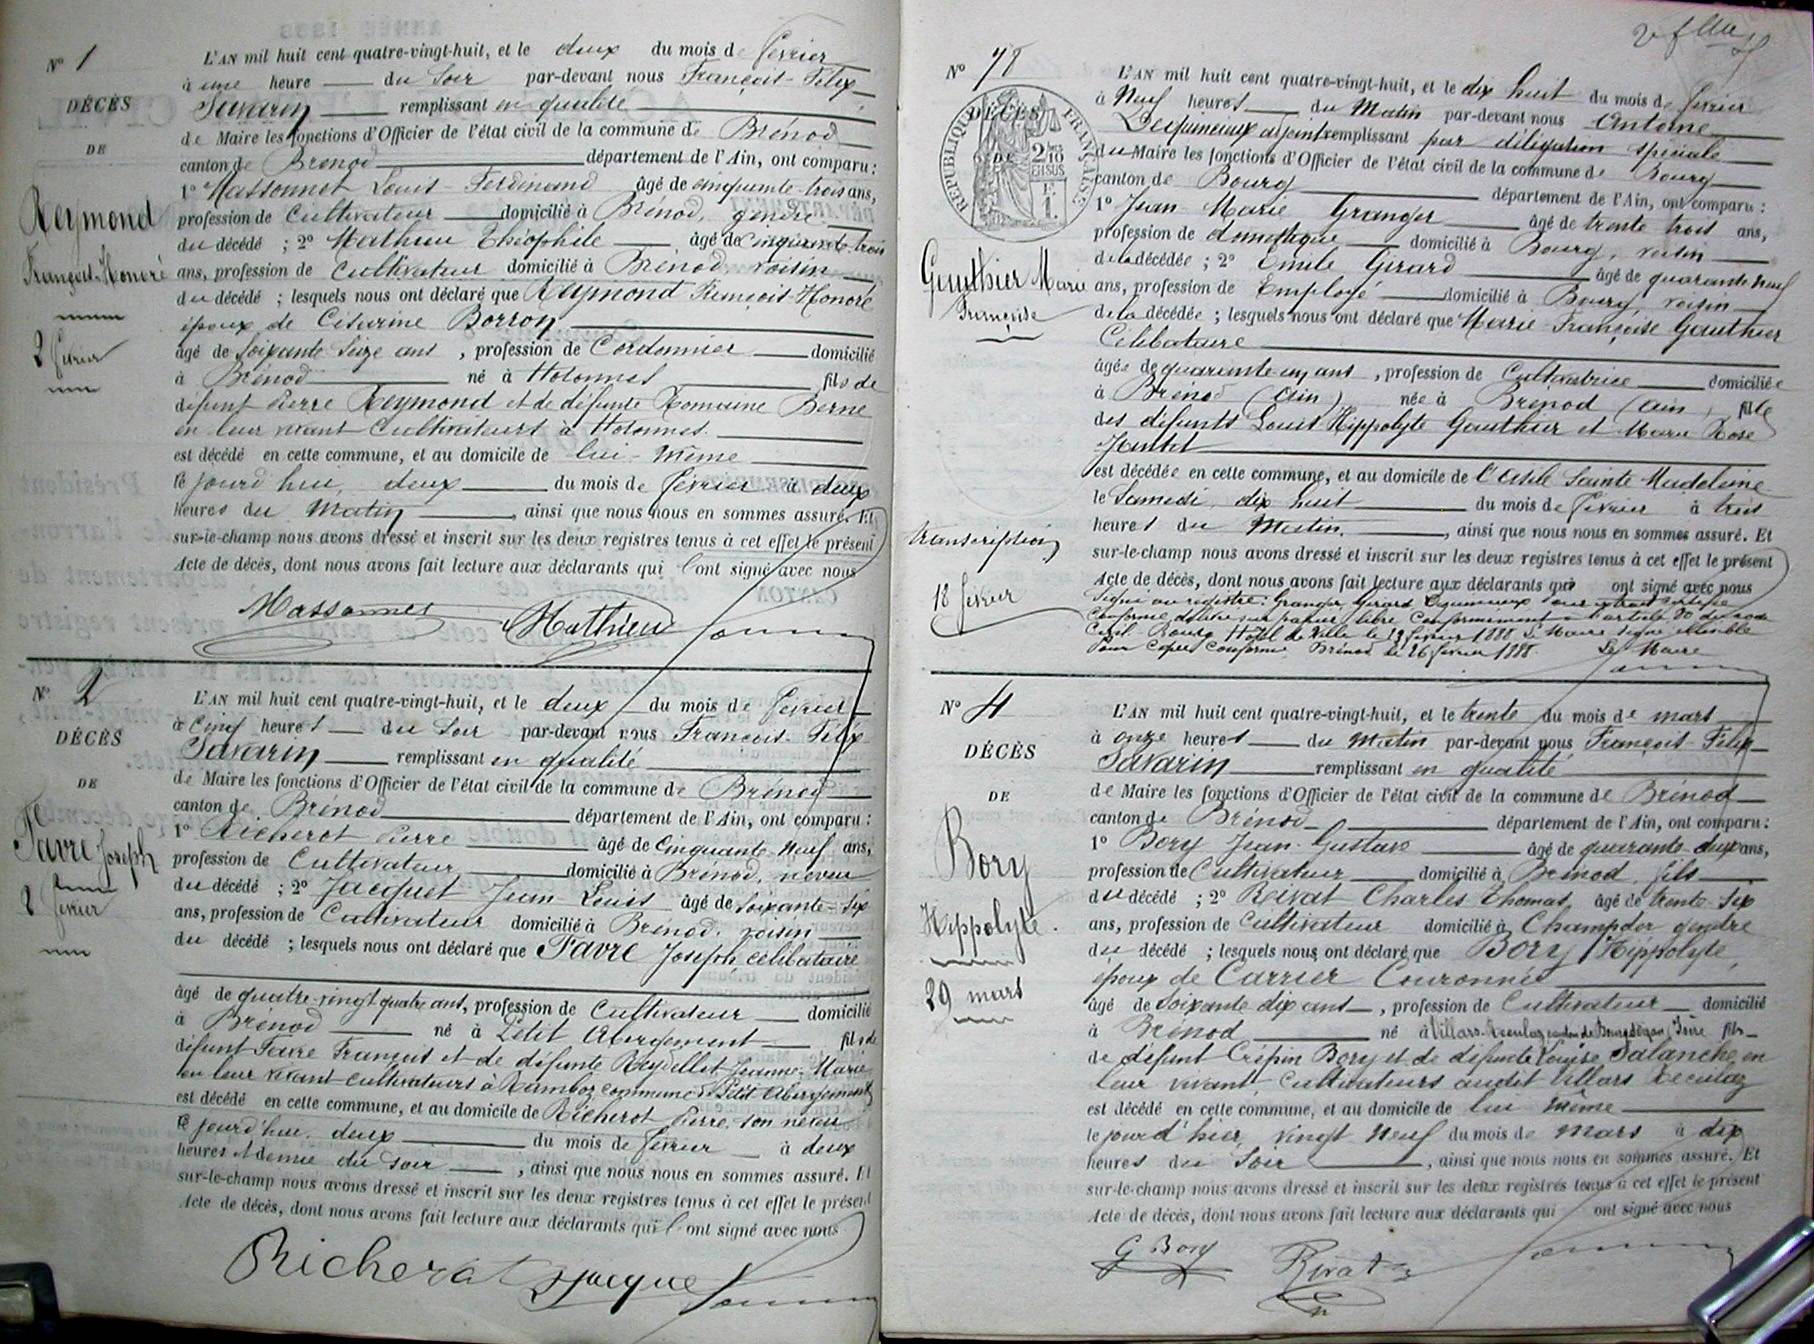 N° 1
DÉCÈS
DE
Reymond
François-Honoré
2 février
L'AN mil huit cent quatre-vingt-huit, et le deux du mois de février
à une heure du soir par-devant nous François-Félix
Savarin remplissant en qualité
de Maire les fonctions d'Officier de l'état civil de la commune de Brénod
canton de Brénod département de l'Ain, ont comparu :
1° Massonnet Louis-Ferdinand âgé de cinquante-trois ans,
profession de Cultivateur domicilié à Brénod, gendre
du décédé ; 2° Mathieu Théophile âgé de cinquante-trois
ans, profession de Cultivateur domicilié à Brénod voisin
du décédé ; lesquels nous ont déclaré que Reymond François-Honoré
époux de Césarine Borron
âgé de soixante seize ans , profession de Cordonnier domicilié
à Brénod né à Hotonnes fils de
défunt Pierre Reymond et de défunte Romaine Berne
en leur vivant Cultivateurs à Hotonnes.
est décédé en cette commune, et au domicile de lui-même
ce jourd'hui, deux du mois de février à deux
heures du Matin , ainsi que nous nous en sommes assuré. Et
sur-le-champ nous avons dressé et inscrit sur les deux registres tenus à cet effet le présent
Acte de décès, dont nous avons fait lecture aux déclarants qui l'ont signé avec nous
Massonnet Mathieu
N° 2
DÉCÈS
DE
Favre Joseph
2 février
L'AN mil huit cent quatre-vingt-huit, et le deux du mois de février
à cinq heures du Soir par-devant nous François-Félix
Savarin remplissant en qualité
de Maire les fonctions d'Officier de l'état civil de la commune de Brénod
canton de Brénod département de l'Ain, ont comparu :
1° Richerot Pierre âgé de Cinquante-Neuf ans,
profession de Cultivateur domicilié à Brénod, neveu
du décédé ; 2° Jacquet Jean-Louis âgé de soixante-six
ans, profession de Cultivateur domicilié à Brénod, voisin
du décédé ; lesquels nous ont déclaré que Favre Joseph célibataire
âgé de quatre-vingt quatre ans, profession de Cultivateur domicilié
à Brénod né à Petit Abergement fils de
défunt Favre François et de défunte Reydellet Jeanne-Marie
en leur vivant cultivateurs à Ramboz commune de Petit Abergement
est décédé en cette commune, et au domicile de Richerot Pierre, son neveu
ce jourd'hui, deux du mois de février à deux
heures et demie du soir , ainsi que nous nous en sommes assuré. Et
sur-le-champ nous avons dressé et inscrit sur les deux registres tenus à cet effet le présent
Acte de décès, dont nous avons fait lecture aux déclarants qui l'ont signé avec nous
Richerot Jacquet
N° 78
DÉCÈS
DE
RÉPUBLIQUE FRANÇAISE
2/10 EN SUS
1 F.
Gauthier Marie
Françoise
transcription
18 février
L'AN mil huit cent quatre-vingt-huit, et le dix huit du mois de février
à Neuf heures du Matin par-devant nous Antoine
Dequincieux adjoint remplissant par délégation spéciale
du Maire les fonctions d'Officier de l'état civil de la commune de Bourg
canton de Bourg département de l'Ain, ont comparu :
1° Jean-Marie Granger âgé de trente trois ans,
profession de domestique domicilié à Bourg, voisin
de la décédée ; 2° Emile Girard âgé de quarante neuf
ans, profession de Employé domicilié à Bourg, voisin
de la décédée ; lesquels nous ont déclaré que Marie-Françoise Gauthier
Célibataire
âgée de quarante cinq ans , profession de Cultivatrice domiciliée
à Brénod (Ain) née à Brénod (Ain) fille
des défunts Louis Hippolyte Gauthier et Marie Rose
est décédée en cette commune, et au domicile de l'asile Sainte Madeleine
le samedi, dix huit du mois de février à trois
heures du Matin. , ainsi que nous nous en sommes assuré. Et
sur-le-champ nous avons dressé et inscrit sur les deux registres tenus à cet effet le présent
Acte de décès, dont nous avons fait lecture aux déclarants qui ont signé avec nous
Signé au registre : Granger Girard Dequincieux Pour extrait certifié
conforme délivré sur papier libre conformément à l'article 80 du code
Civil. Bourg Hôtel de Ville le 19 février 1888 Le Maire signé
Pour Copie Conforme Brénod le 26 février 1888. Le Maire
N° 4
DÉCÈS
DE
Bory
Hippolyte.
29 mars
L'AN mil huit cent quatre-vingt-huit, et le trente du mois de mars
à onze heures du Matin par-devant nous François-Félix
Savarin remplissant en qualité
de Maire les fonctions d'Officier de l'état civil de la commune de Brénod
canton de Brénod département de l'Ain, ont comparu :
1° Bory Jean-Gustave âgé de quarante-deux ans,
profession de Cultivateur domicilié à Brénod, fils
du décédé ; 2° Reivat Charles Thomas, âgé de trente-six
ans, profession de Cultivateur domicilié à Champdor gendre
du décédé ; lesquels nous ont déclaré que Bory Hippolyte,
époux de Carrier Couronnée
âgé de soixante dix ans , profession de Cultivateur domicilié
à Brénod né à Villars-Reculaz canton de Bourgdoizan, Isère fils
de défunt Crépin Bory et de défunte Louise Salanche, en
leur vivant Cultivateurs audit Villars Reculaz
est décédé en cette commune, et au domicile de lui même
le jour d'hier, vingt neuf du mois de mars à dix
heures du Soir , ainsi que nous nous en sommes assuré. Et
sur-le-champ nous avons dressé et inscrit sur les deux registres tenus à cet effet le présent
Acte de décès, dont nous avons fait lecture aux déclarants qui ont signé avec nous
G Bory Rivat